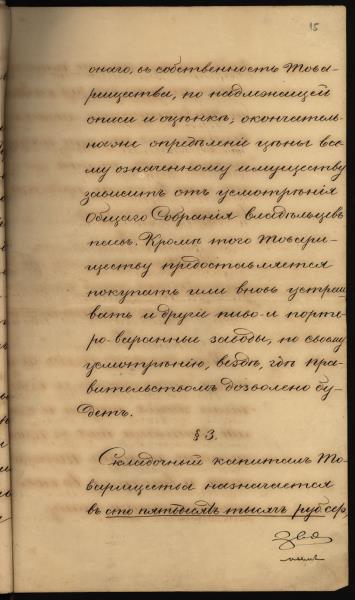 15
онаго, въ собственность Това-
рищества, по надлежащей
описи и оцѣнкѣ; окончатель-
ное же опредѣленіе цѣны все-
му означенному имуществу
зависитъ отъ усмотрѣнія
Общаго Собранія владѣльцевъ
паевъ. Кромѣ того Товари-
ществу предоставляется
покупать или вновь устраи-
вать и другіе пиво- и порте-
ро-варенные заводы, по своему
усмотрѣнію, вездѣ, гдѣ пра-
вительствомъ дозволено бу-
детъ.
§ 3.
Складочный капиталъ То-
варищества назначается
въ сто пятьдесятъ тысячъ руб. сер.,